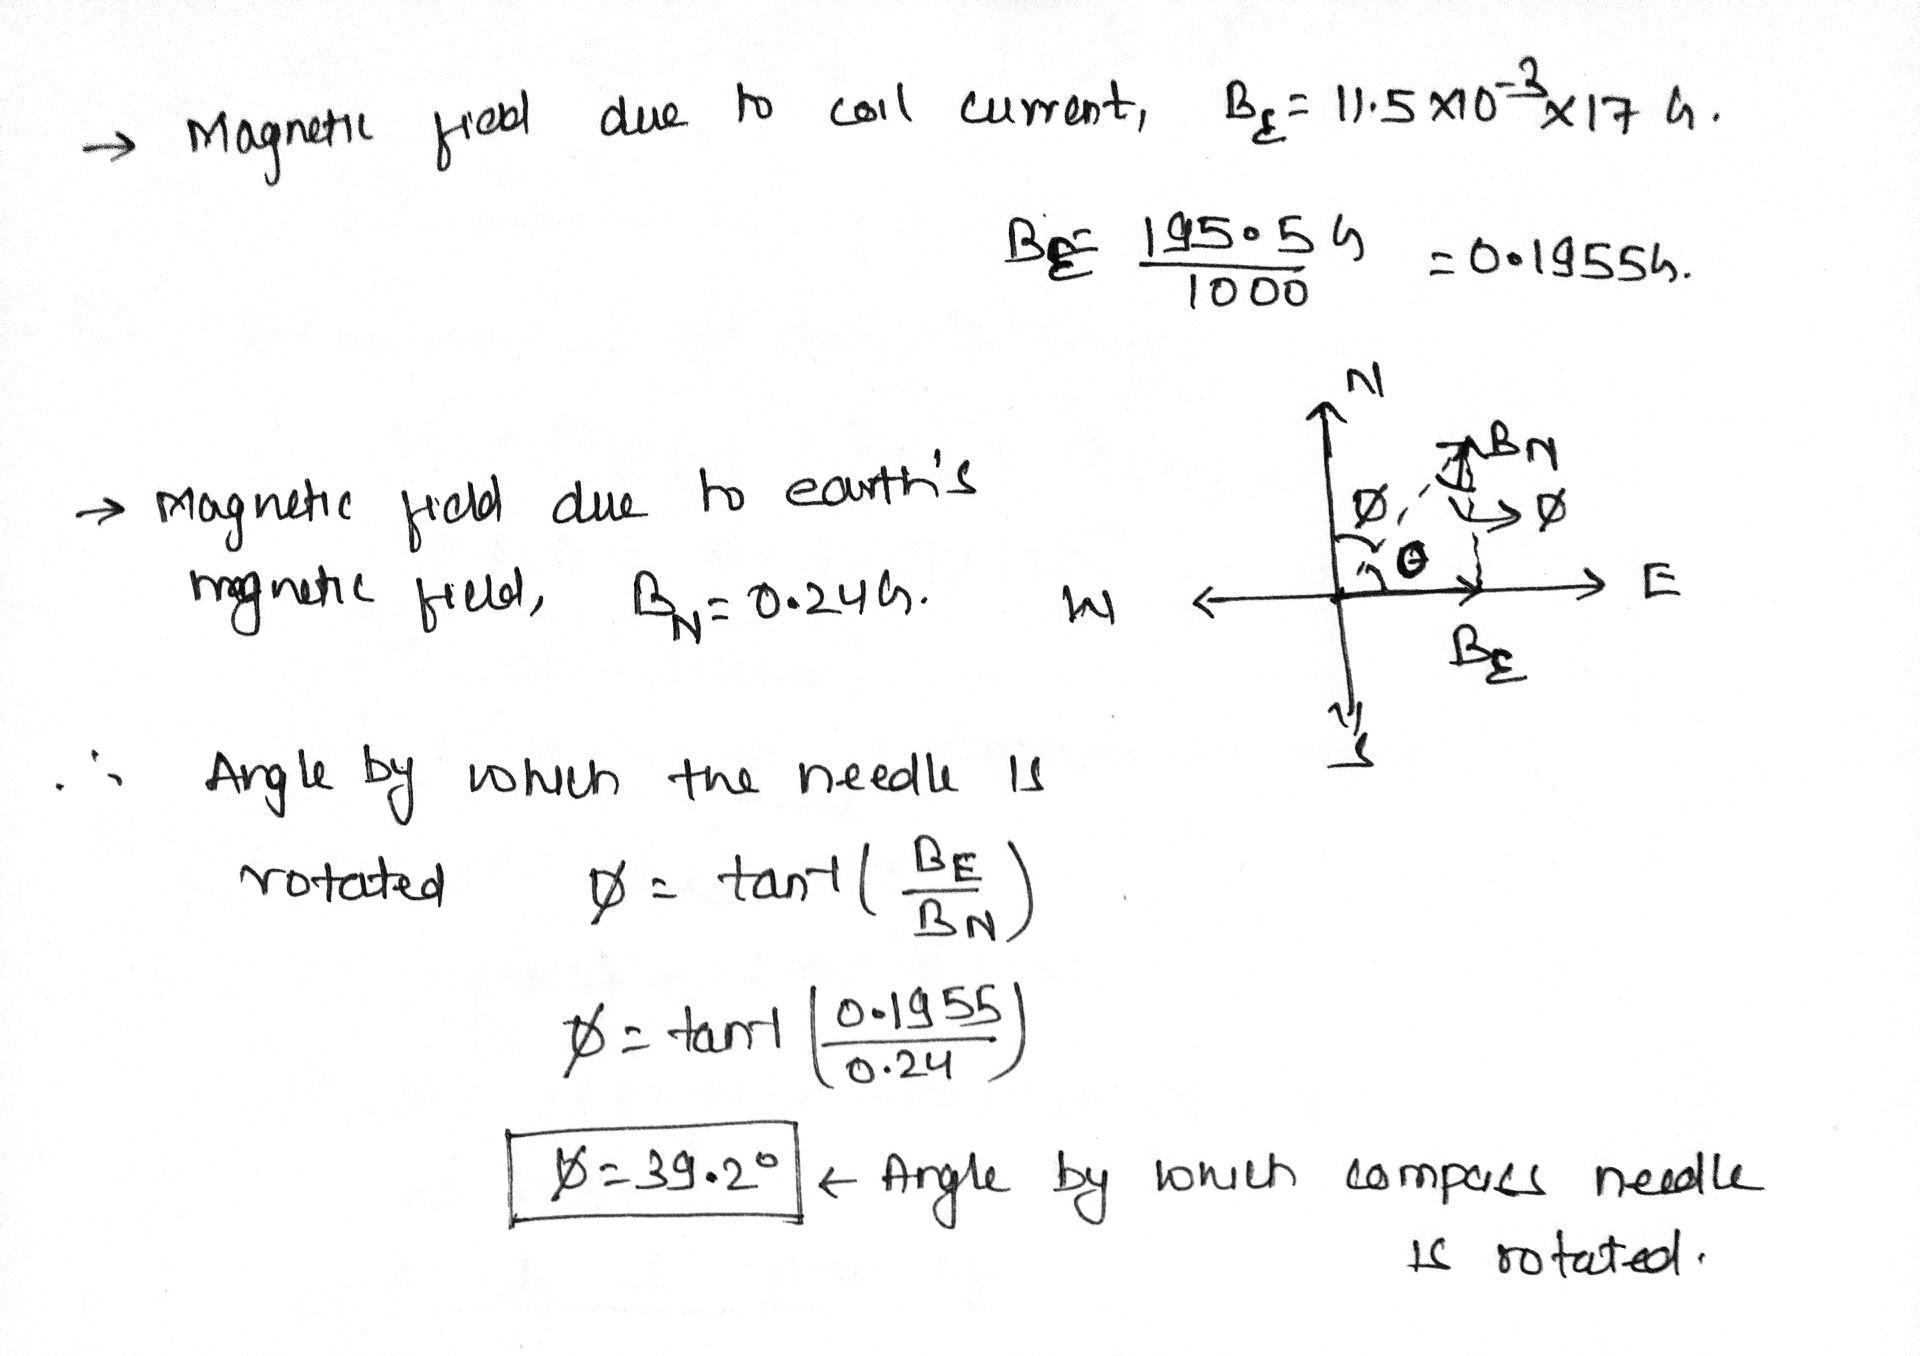 → Magnetic field due to coil current, B_E = 11.5 × 10^-3 × 17 G.
B_E = 195.5 G / 1000 = 0.1955 G.
N
B_N
→ Magnetic field due to earth's
Ø Ø
θ
magnetic field, B_N = 0.24 G.
W E
B_E
S
∴ Angle by which the needle is
rotated Ø = tan-1 ( B_E / B_N )
Ø = tan-1 ( 0.1955 / 0.24 )
Ø = 39.2° ← Angle by which compass needle
is rotated.